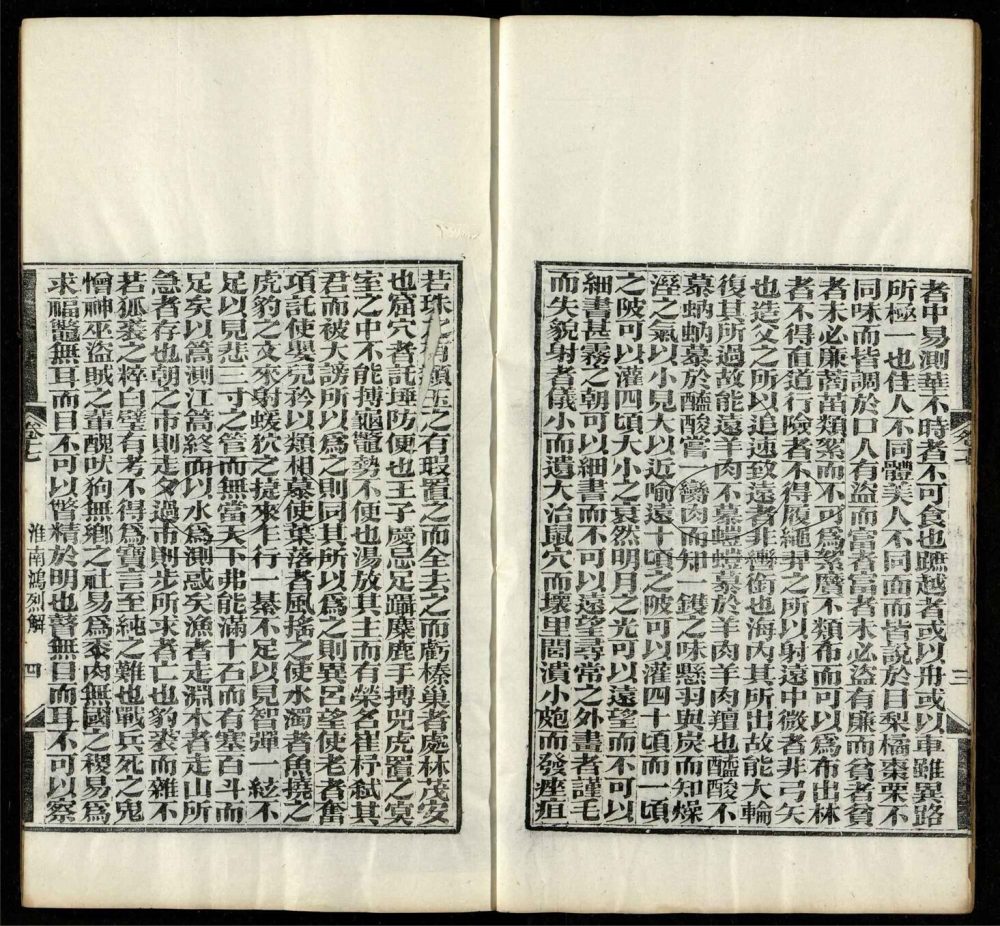 者中易測華不時者不可食也蹠越者或以舟或以車雖異路
所極一也佳人不同體美人不同面而皆說於目梨橘棗栗不
同味而皆調於口人有盜而富者富者未必盜有廉而貧者貧
者未必廉蔐苗類絮而不可爲絮黂不類布而可以爲布出林
者不得直道行險者不得履繩羿之所以射遠中微者非弓矢
也造父之所以追速致遠者非轡銜也海內其所出故能大輪
復其所過故能遠羊肉不慕螘螘慕於羊肉羊肉羶也醯酸不
慕蚋蚋慕於醯酸嘗一臠肉而知一鑊之味懸羽與炭而知燥
溼之氣以小見大以近喻遠十頃之陂可以灌四十頃而一頃
之陂可以灌四頃大小之衰然明月之光可以遠望而不可以
細書甚霧之朝可以細書而不可以遠望尋常之外畫者謹毛
而失貌射者儀小而遺大治鼠穴而壞里閭潰小皰而發痤疽
卷十七
三
若珠之有纇玉之有瑕置之而全去之而虧榛巢者處林茂安
也窟穴者託埵防便也王子慶忌足躡麋鹿手搏兕虎置之冥
室之中不能搏龜鼈勢不便也湯放其主而有榮名崔杼弒其
君而被大謗所以爲之則同其所以爲之則異呂望使老者奮
項託使嬰兒矜以類相慕使葉落者風搖之使水濁者魚撓之
虎豹之文來射蝯狖之捷來乍行一棊不足以見智彈一絃不
足以見悲三寸之管而無當天下弗能滿十石而有塞百斗而
足矣以篙測江篙終而以水爲測惑矣漁者走淵木者走山所
急者存也朝之市則走夕過市則步所求者亡也豹裘而雜不
若狐裘之粹白璧有考不得爲寶言至純之難也戰兵死之鬼
憎神巫盜賊之輩醜吠狗無鄉之社易爲黍肉無國之稷易爲
求福鼈無耳而目不可以瞥精於明也瞽無目而耳不可以察
卷十七
淮南鴻烈解
四